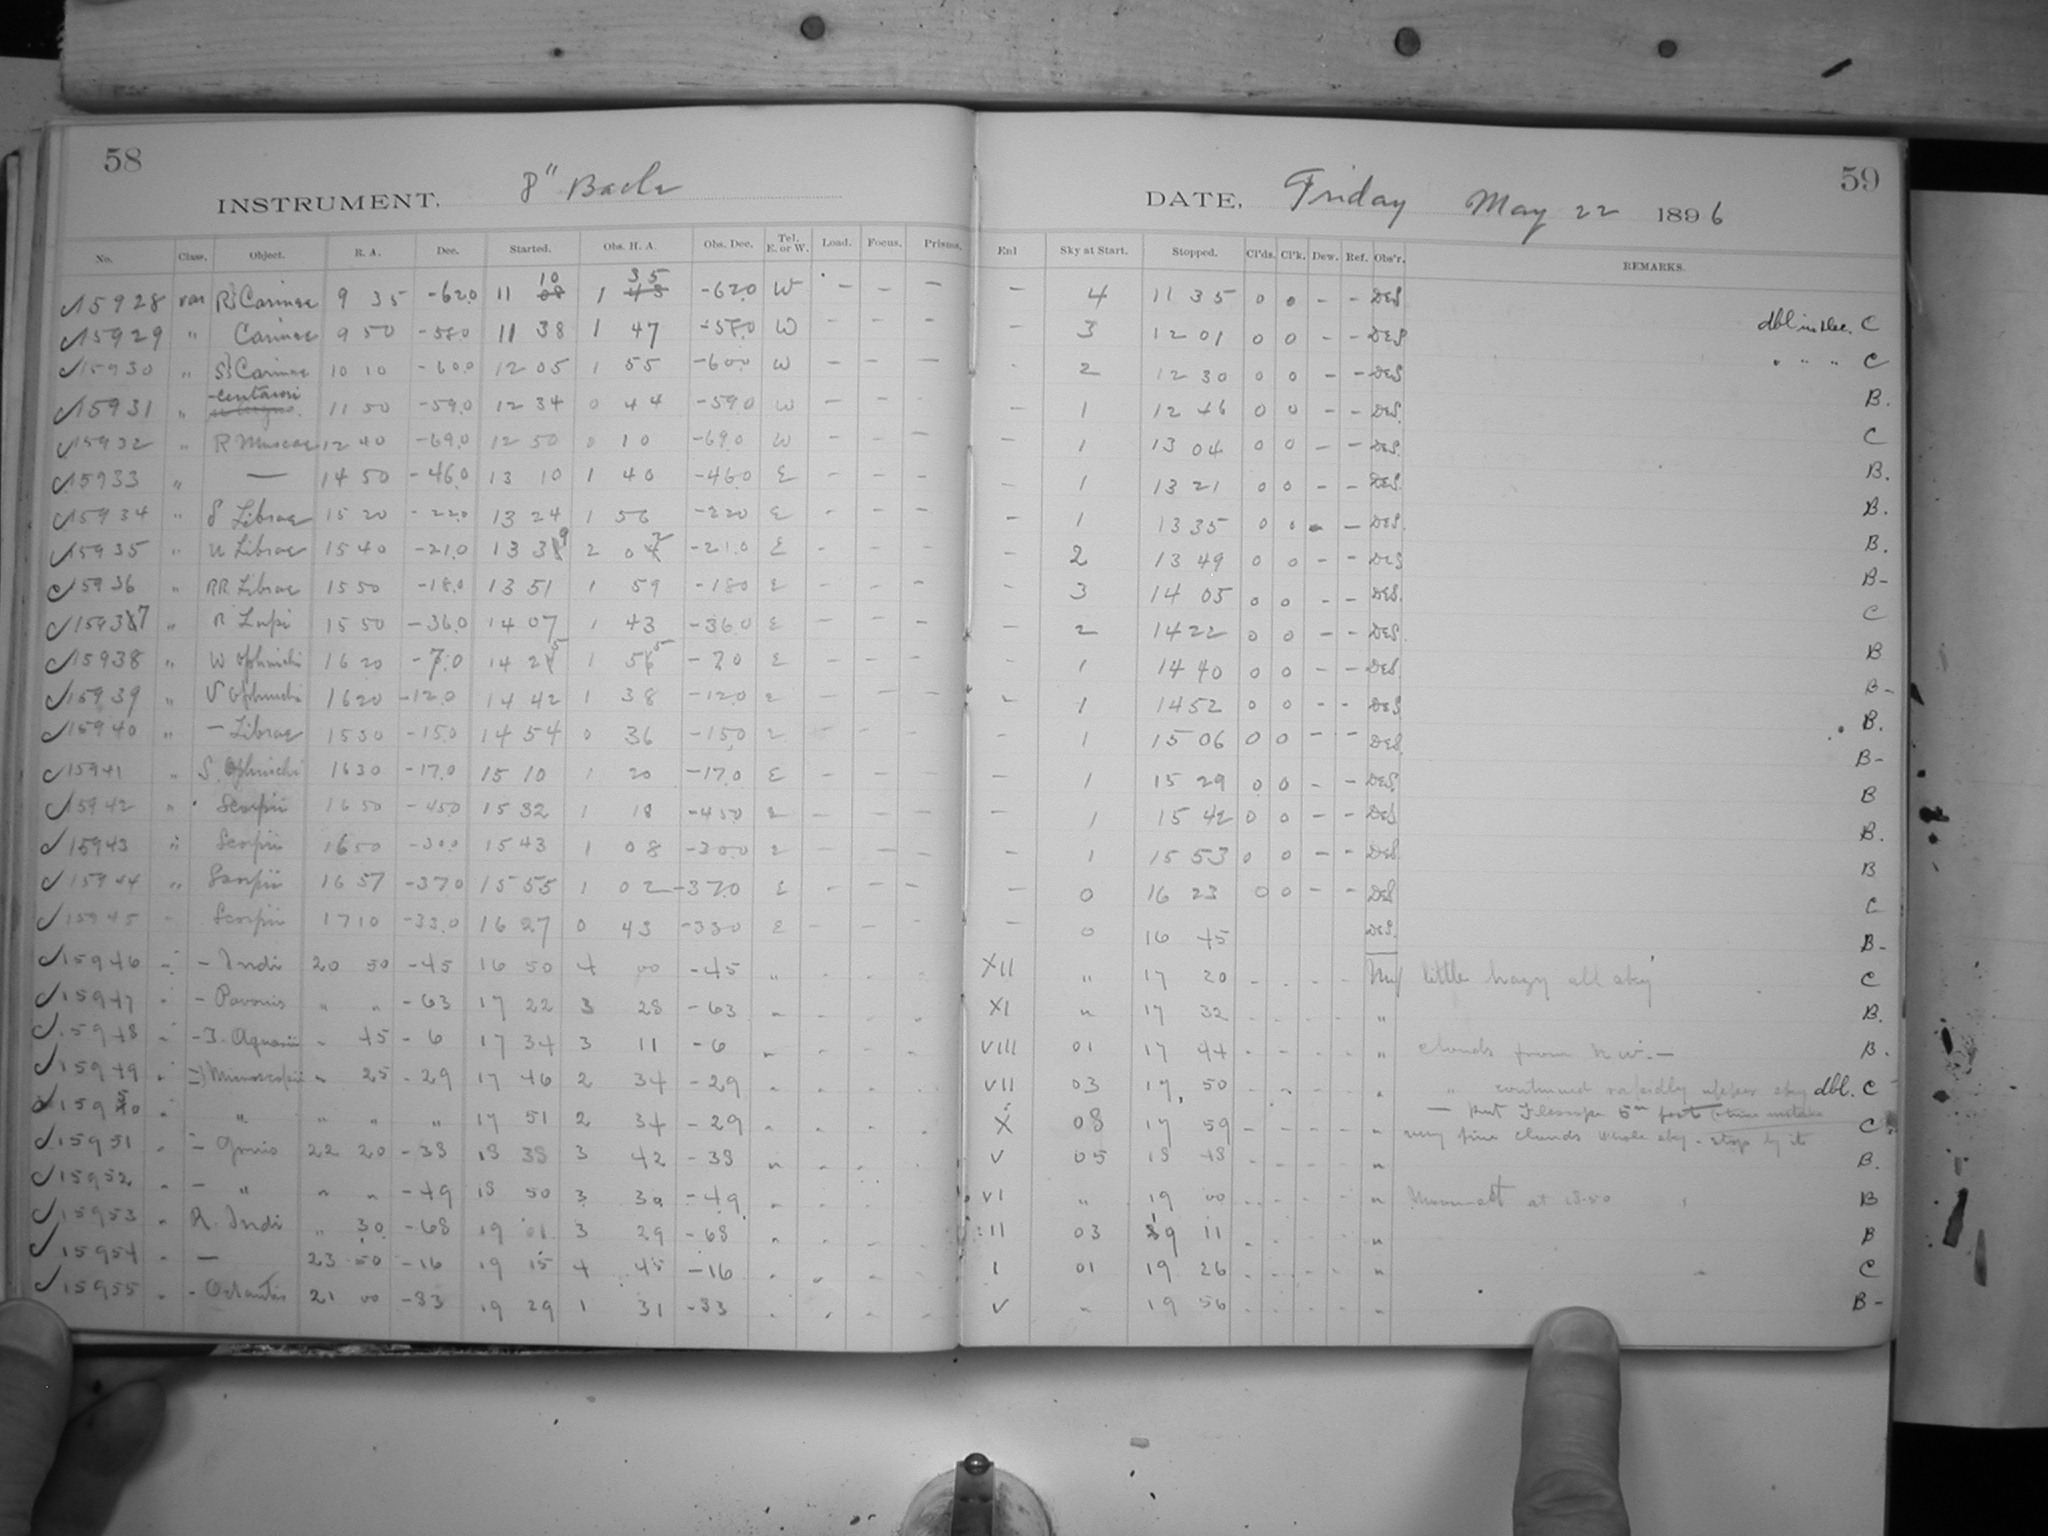 58
INSTRUMENT. 8" Bache
No. Class. Object. R. A. Dec. Started. Obs. H. A. Obs. Dec. Tel. E. or W. Load. Focus. Prisms.
15928 var R} Carinae 9 35 -62.0 11 10 1 35 -62.0 W - - -
15929 " Carinae 9 50 -58.0 11 38 1 47 -58.0 W - - -
15930 " S} Carinae 10 10 -60.0 12 05 1 55 -60.0 W - - -
15931 " - Centauri 11 50 -59.0 12 34 0 44 -59.0 W - - -
15932 " R Muscae 12 40 -69.0 12 50 0 10 -69.0 W - - -
15933 " — 14 50 -46.0 13 10 1 40 -46.0 E - - -
15934 " δ Librae 15 20 -22.0 13 24 1 56 -22.0 E - - -
15935 " U Librae 15 40 -21.0 13 39 2 02 -21.0 E - - -
15936 " RR Librae 15 50 -18.0 13 51 1 59 -18.0 E - - -
15937 " R Lupi 15 50 -36.0 14 07 1 43 -36.0 E - - -
15938 " W Ophiuchi 16 20 -7.0 14 25 1 55 -7.0 E - - -
15939 " V Ophiuchi 16 20 -12.0 14 42 1 38 -12.0 E - - -
15940 " - Librae 15 30 -15.0 14 54 0 36 -15.0 E - - -
15941 " S. Ophiuchi 16 30 -17.0 15 10 1 20 -17.0 E - - -
15942 " Scorpii 16 50 -45.0 15 32 1 18 -45.0 E - - -
15943 " Scorpii 16 50 -30.0 15 43 1 08 -30.0 E - - -
15944 " Scorpii 16 57 -37.0 15 55 1 02 -37.0 E - - -
15945 " Scorpii 17 10 -33.0 16 27 0 43 -33.0 E - - -
15946 " - Indi 20 50 -45 16 50 4 00 -45 "
15947 " - Pavonis " " -63 17 22 3 28 -63 "
15948 " - T. Aquarii " 45 -6 17 34 3 11 -6 "
15949 " Microscopii " 25 -29 17 46 2 34 -29 "
15950 " " " " " 17 51 2 34 -29 "
15951 " - Gruis 22 20 -38 18 38 3 42 -38 "
15952 " - " " " -49 18 50 3 30 -49 "
15953 " R. Indi " 30 -68 19 01 3 29 -68 "
15954 " — 23 50 -16 19 15 4 45 -16 "
15955 " - Octantis 21 00 -83 19 29 1 31 -83 "
59
DATE, Friday May 22 1896
Enl Sky at Start. Stopped. Cl'ds. Cl'k. Dew. Ref. Obs'r. REMARKS.
- 4 11 35 0 0 - - DES dbl in Dec. C
- 3 12 01 0 0 - - DES " " " C
- 2 12 30 0 0 - - DES B.
- 1 12 46 0 0 - - DES. C
- 1 13 04 0 0 - - DES. B.
- 1 13 21 0 0 - - DES. B.
- 1 13 35 0 0 - - DES. B.
- 2 13 49 0 0 - - DES B-
- 3 14 05 0 0 - - DES. C
- 2 14 22 0 0 - - DES. B
- 1 14 40 0 0 - - DES. B-
- 1 14 52 0 0 - - DES B.
1 15 06 0 0 - - DES. B-
- 1 15 29 0 0 - - DES. B
- 1 15 42 0 0 - - DES B.
- 1 15 53 0 0 - - DES. B
- 0 16 23 0 0 - - DES C
- 0 16 45 DES. B-
XII " 17 20 - - - - little hazy all sky C
XI " 17 32 - - - - " B.
VIII 01 17 44 - - - - " clouds from N W. — B.
VII 03 17 50 - - - - " " continued rapidly upper sky dbl. C
— put Telescope 5m
X 08 17 59 - - - - " very fine clouds whole sky - stop by it C
V 05 18 48 - - - - " B.
VI " 19 00 - - - - " Moon set at 18.50 B
II 03 19 11 - - - - " B
I 01 19 26 - - - - " C
V " 19 56 - - - - " B-